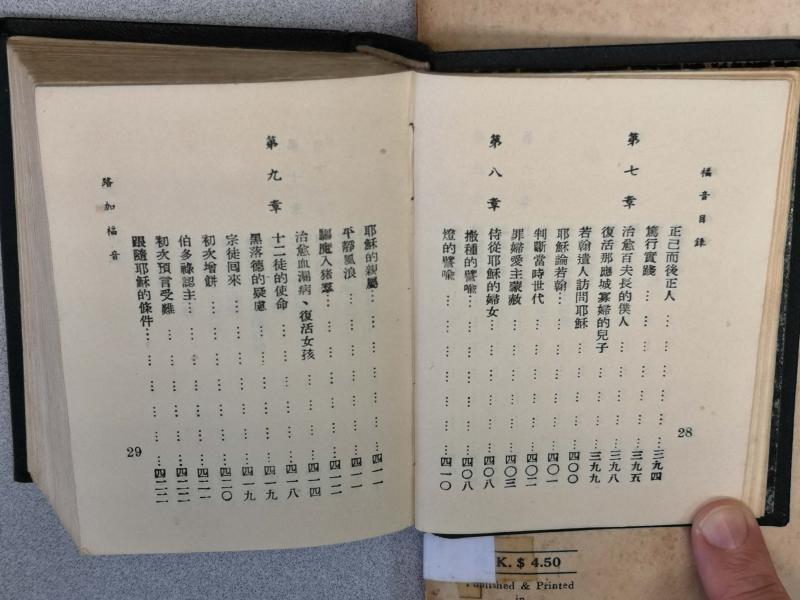 福音目錄
正己而後正人 … … … … … … 三九四
篤行實踐 … … … … … … 三九五
第七章
治愈百夫長的僕人 … … … … … 三九八
復活那應城寡婦的兒子 … … … … 三九九
若翰遣人訪問耶穌 … … … … … 四〇〇
耶穌論若翰 … … … … … … 四〇一
判斷當時世代 … … … … … … 四〇二
罪婦愛主蒙赦 … … … … … … 四〇三
第八章
侍從耶穌的婦女 … … … … … 四〇八
撒種的譬喻 … … … … … … 四〇八
燈的譬喻 … … … … … … 四一〇
28
耶穌的親屬 … … … … … … 四一一
平靜風浪 … … … … … … 四一一
驅魔入豬羣 … … … … … … 四一二
治愈血漏病、復活女孩 … … … … 四一四
第九章
十二徒的使命 … … … … … … 四一八
黑落德的疑慮 … … … … … … 四一九
宗徒回來 … … … … … … 四一九
初次增餅 … … … … … … 四二〇
伯多祿認主 … … … … … … 四二一
初次預言受難 … … … … … … 四二二
跟隨耶穌的條件 … … … … … 四二二
路加福音
29
K. $ 4.50
Published & Printed
in